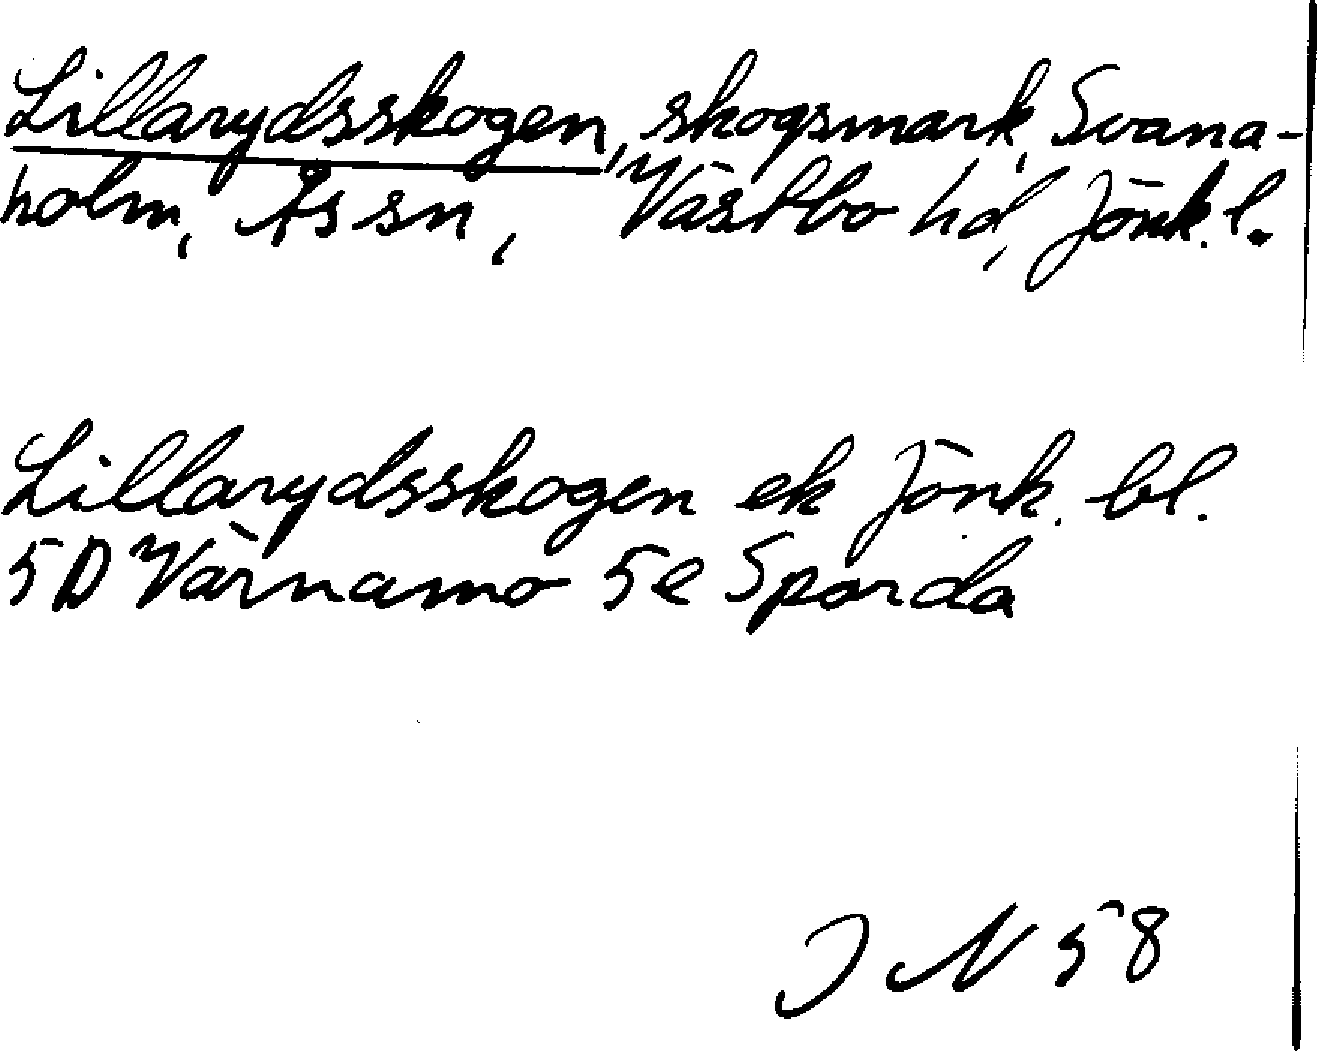 Lillarydsskogen, skogsmark, Svana-
holm, Ås sn, Västbo hd, Jönk. l.
Lillarydsskogen ek Jönk. bl.
5D Värnamo 5e Sporda
J N 58